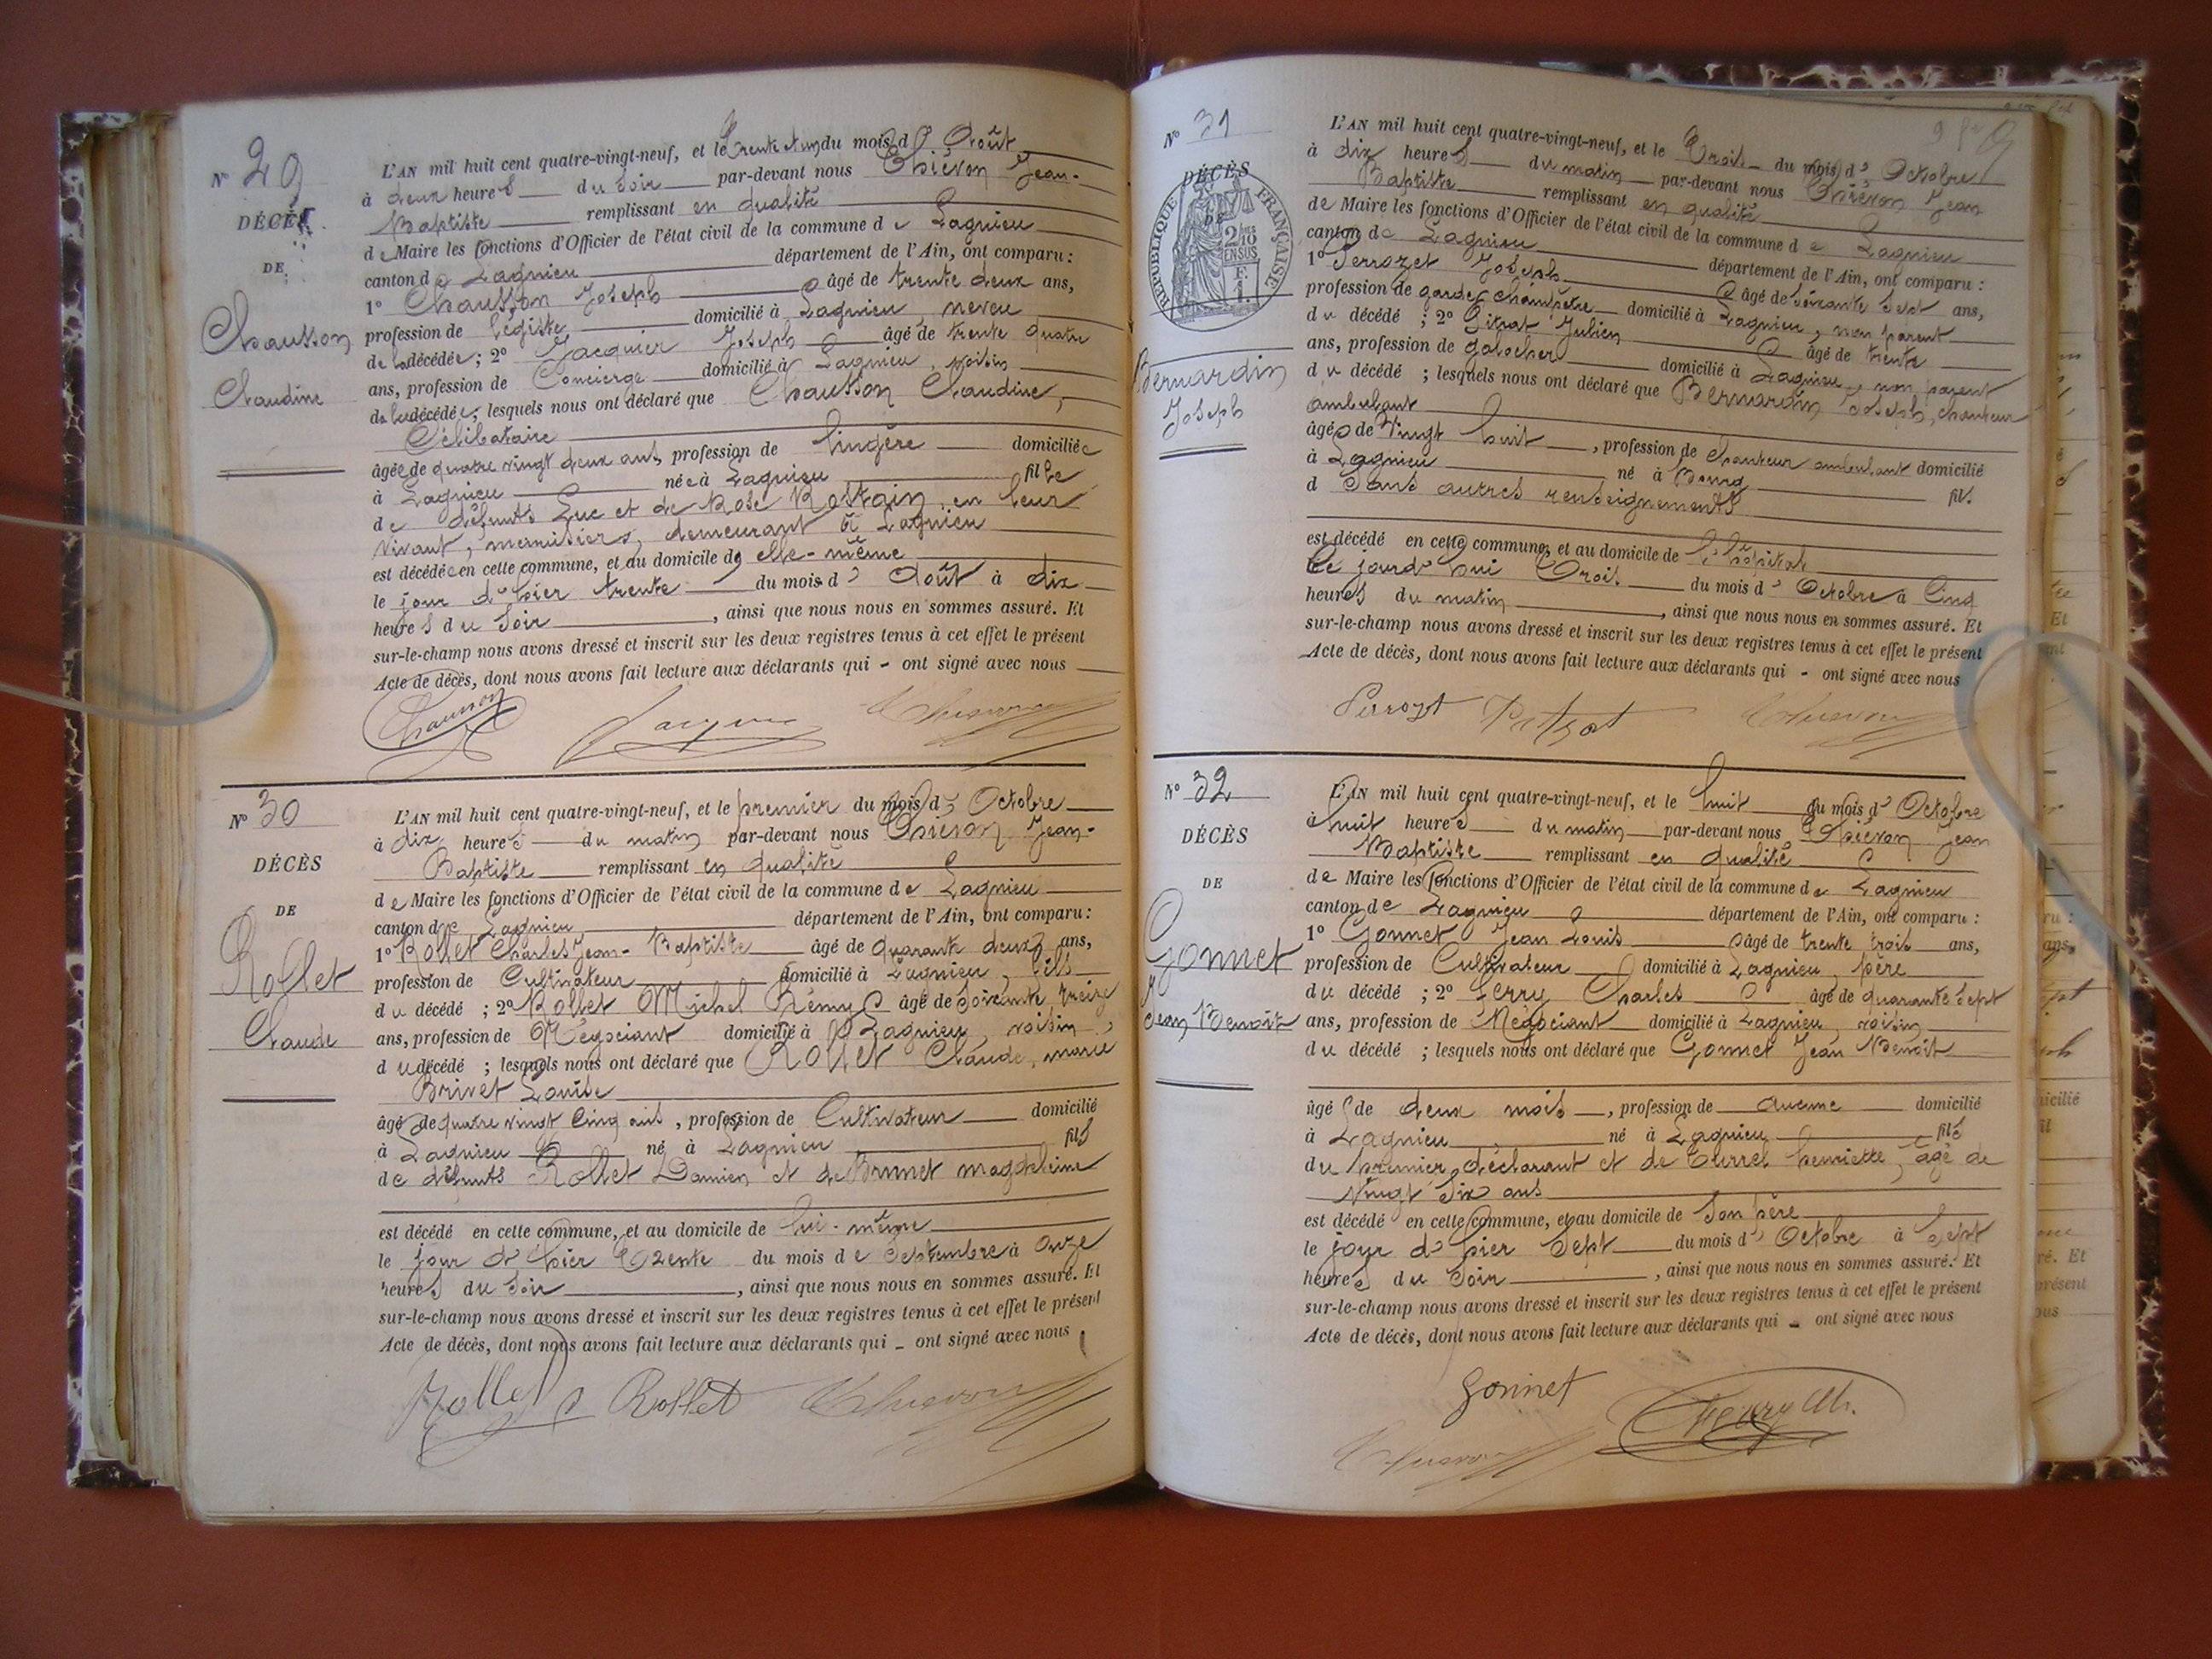 N° 29
DÉCÈS
DE
Chausson
Claudine
L'AN mil huit cent quatre-vingt-neuf, et le trente et un du mois d' Août
à deux heures du soir par-devant nous Thiévon Jean-
Baptiste remplissant en qualité
de Maire les fonctions d'Officier de l'état civil de la commune de Lagnieu
canton de Lagnieu département de l'Ain, ont comparu :
1° Chausson Joseph âgé de trente deux ans,
profession de légiste domicilié à Lagnieu, neveu
de la décédée ; 2° Jacquier Joseph âgé de trente quatre
ans, profession de Concierge domicilié à Lagnieu, voisin
de la décédée, lesquels nous ont déclaré que Chausson Claudine,
Célibataire
âgée de quatre vingt deux ans, profession de lingère domiciliée
à Lagnieu née à Lagnieu fille
de défunts Luc et de Rose Rostain, en leur
vivant, menuisiers, demeurant à Lagnieu
est décédée en cette commune, et au domicile d' elle-même
le jour d'hier trente du mois d' Août à dix
heures du soir, ainsi que nous nous en sommes assuré. Et
sur-le-champ nous avons dressé et inscrit sur les deux registres tenus à cet effet le présent
Acte de décès, dont nous avons fait lecture aux déclarants qui - ont signé avec nous
Chausson
N° 30
DÉCÈS
DE
Rollet
Claude
L'AN mil huit cent quatre-vingt-neuf, et le premier du mois d' Octobre
à dix heures du matin par-devant nous Thiévon Jean-
Baptiste remplissant en qualité
de Maire les fonctions d'Officier de l'état civil de la commune de Lagnieu
canton de Lagnieu département de l'Ain, ont comparu :
1° Rollet Charles Jean-Baptiste âgé de quarante deux ans,
profession de Cultivateur domicilié à Lagnieu, fils
du décédé ; 2° Rollet Michel Rémy âgé de soixante treize
ans, profession de Négociant domicilié à Lagnieu, voisin
du décédé ; lesquels nous ont déclaré que Rollet Claude, marié
Brivet Louise
âgé de quatre vingt cinq ans, profession de Cultivateur domicilié
à Lagnieu né à Lagnieu fils
de défunts Rollet Damien et de Brunet magdeleine
est décédé en cette commune, et au domicile de lui-même
le jour d'hier trente du mois de Septembre à onze
heures du soir, ainsi que nous nous en sommes assuré. Et
sur-le-champ nous avons dressé et inscrit sur les deux registres tenus à cet effet le présent
Acte de décès, dont nous avons fait lecture aux déclarants qui - ont signé avec nous
Rollet Rollet
N° 31
DÉCÈS
DE
RÉPUBLIQUE FRANÇAISE
2/10
EN SUS
Bernardin
Joseph
L'AN mil huit cent quatre-vingt-neuf, et le trois du mois d' Octobre
à dix heures du matin par-devant nous Thiévon Jean
Baptiste remplissant en qualité
de Maire les fonctions d'Officier de l'état civil de la commune de Lagnieu
canton de Lagnieu département de l'Ain, ont comparu :
1° Perrozet Joseph âgé de soixante sept ans,
profession de garde champêtre domicilié à Lagnieu, non parent
du décédé ; 2° Julien âgé de trente
ans, profession de galocher domicilié à Lagnieu, non parent
du décédé ; lesquels nous ont déclaré que Bernardin Joseph, chanteur
ambulant
âgé de vingt huit, profession de chanteur ambulant domicilié
à Lagnieu né à Bourg fils
d sans autres renseignements
est décédé en cette commune, et au domicile de l'hôpital
ce jourd'hui trois du mois d' Octobre à cinq
heures du matin, ainsi que nous nous en sommes assuré. Et
sur-le-champ nous avons dressé et inscrit sur les deux registres tenus à cet effet le présent
Acte de décès, dont nous avons fait lecture aux déclarants qui - ont signé avec nous
N° 32
DÉCÈS
DE
Gonnet
Jean Benoît
L'AN mil huit cent quatre-vingt-neuf, et le huit du mois d' Octobre
à huit heures du matin par-devant nous Thiévon Jean
Baptiste remplissant en qualité
de Maire les fonctions d'Officier de l'état civil de la commune de Lagnieu
canton de Lagnieu département de l'Ain, ont comparu :
1° Gonnet Jean Louis âgé de trente trois ans,
profession de Cultivateur domicilié à Lagnieu, père
du décédé ; 2° Ferry Charles âgé de quarante sept
ans, profession de Négociant domicilié à Lagnieu, voisin
du décédé ; lesquels nous ont déclaré que Gonnet Jean Benoît
âgé de deux mois, profession de aucune domicilié
à Lagnieu né à Lagnieu fils
du premier déclarant et de Henriette, âgé de
vingt six ans
est décédé en cette commune, et au domicile de son père
le jour d'hier sept du mois d' Octobre à sept
heures du soir, ainsi que nous nous en sommes assuré. Et
sur-le-champ nous avons dressé et inscrit sur les deux registres tenus à cet effet le présent
Acte de décès, dont nous avons fait lecture aux déclarants qui - ont signé avec nous
Gonnet